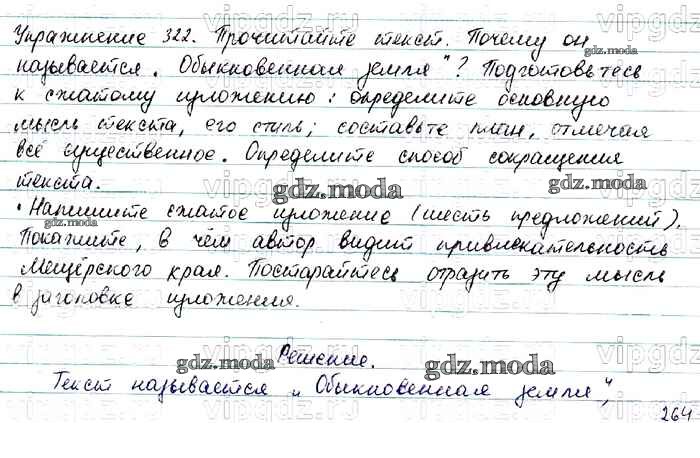 Упражнение 322. Прочитайте текст. Почему он
называется „Обыкновенная земля"? Подготовьтесь
к сжатому изложению: определите основную
мысль текста, его стиль; составьте план, отмечая
всё существенное. Определите способ сокращения
текста.
• Напишите сжатое изложение (шесть предложений).
Покажите, в чём автор видит привлекательность
Мещёрского края. Постарайтесь отразить эту мысль
в заголовке изложения.
Решение.
Текст называется „Обыкновенная земля",
264
gdz.moda
gdz.moda
gdz.moda
gdz.moda
gdz.moda
gdz.moda
gdz.moda
vipgdz.ru